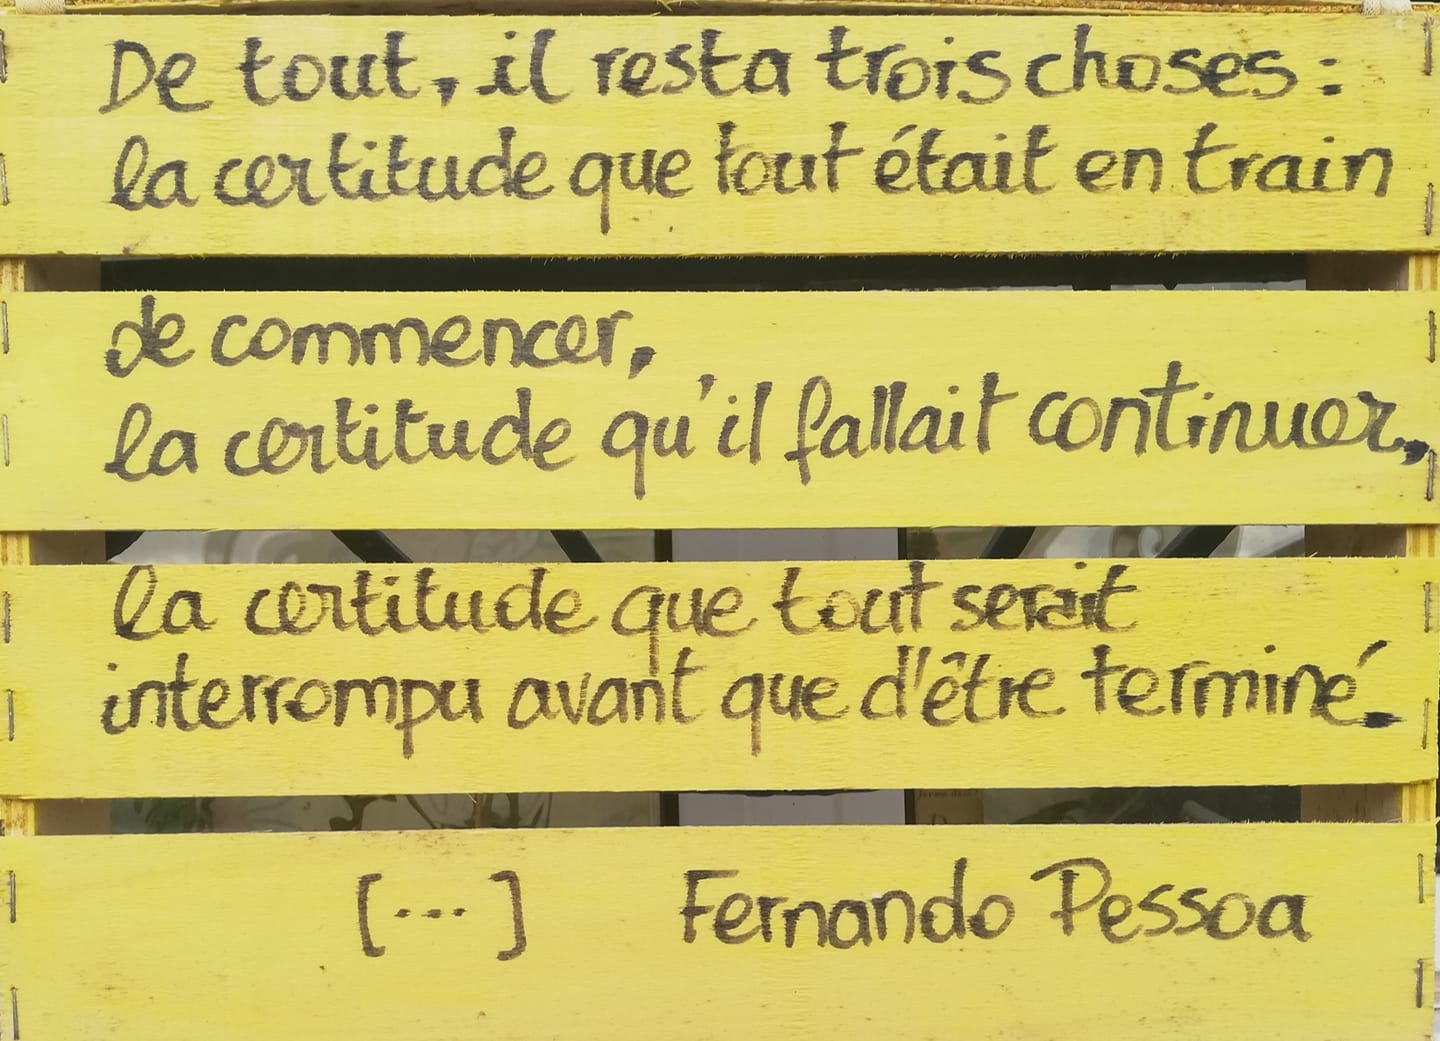 De tout, il resta trois choses :
la certitude que tout était en train
de commencer,
la certitude qu'il fallait continuer,
la certitude que tout serait
interrompu avant que d'être terminé.
[...] Fernando Pessoa